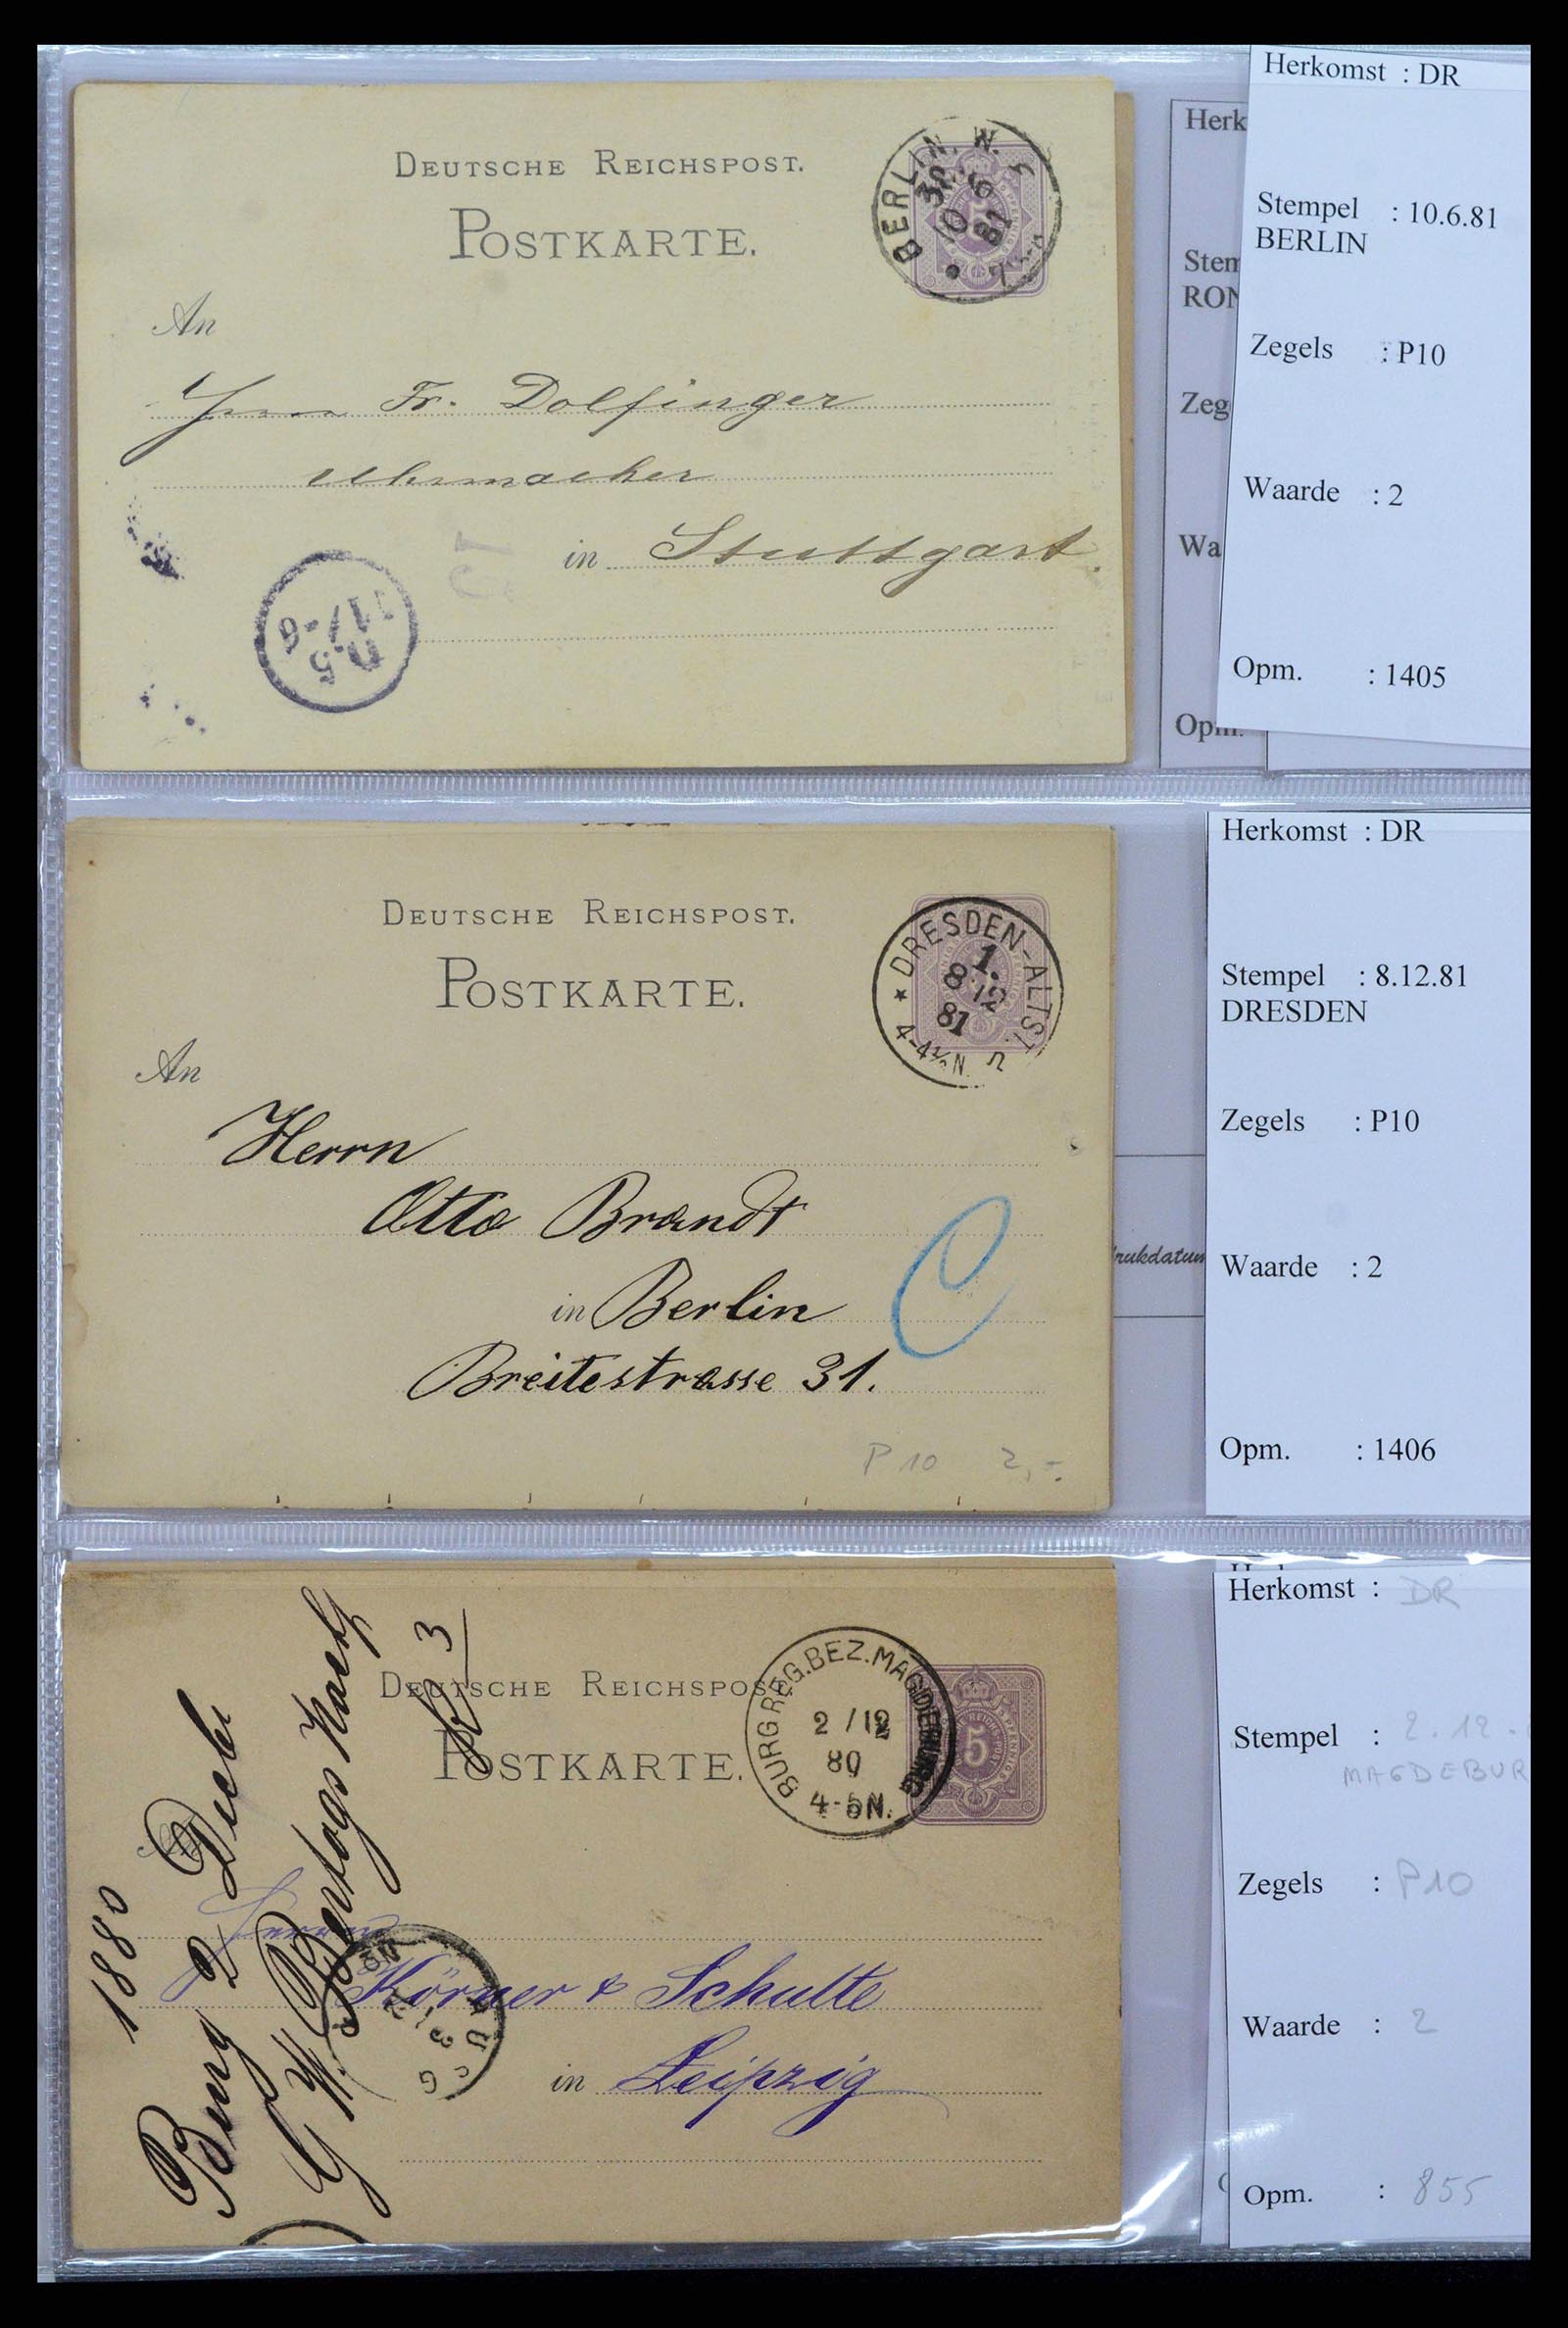 DEUTSCHE REICHSPOST.
POSTKARTE.
BERLIN. W.
10 6
81
An
Fr. Dolfinger
Uhrmacher
in Stuttgart.
Herk
Stem
RON
Zeg
Wa
Opm.
Herkomst : DR
Stempel : 10.6.81
BERLIN
Zegels : P10
Waarde : 2
Opm. : 1405
DEUTSCHE REICHSPOST.
POSTKARTE.
★ DRESDEN-ALTST.
1.
8 12
81
4-4½N.
An
Herrn
Otto Brandt
in Berlin
Breitestrasse 31.
C
P 10 2,-
rukdatum
Herkomst : DR
Stempel : 8.12.81
DRESDEN
Zegels : P10
Waarde : 2
Opm. : 1406
DEUTSCHE REICHSPOST.
POSTKARTE.
BURG REG.BEZ.MAGDEBURG
2 /12
80
4-5N.
5
1880
Burg 2 Decbr
Herrn
Körner & Schulte
in Leipzig
Herkomst : DR
Stempel : 2.12.
MAGDEBUR
Zegels : P10
Waarde : 2
Opm. : 855